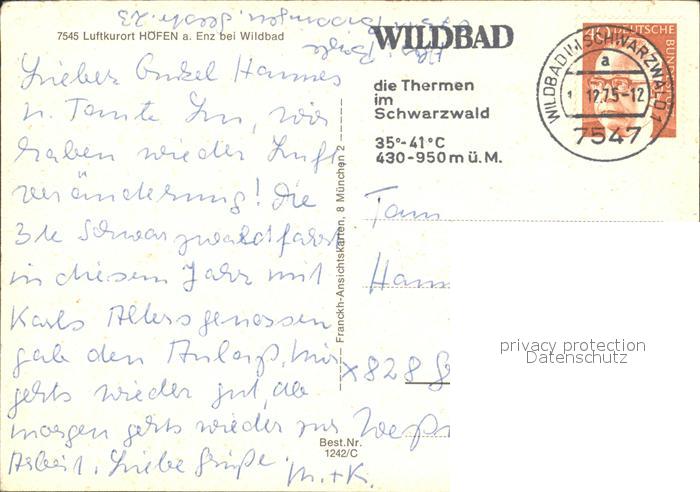 7545 Luftkurort HÖFEN a. Enz bei Wildbad
Lieber Onkel Hannes
u. Tante Inn, wir
haben wieder Luft
veränderung! Die
3te Schwarzwaldfahrt
in diesem Jahr mit
Karls Altersgenossen
gab den Anlaß. Mir
gehts wieder gut, ab
morgen gehts wieder zur
Arbeit. Liebe Grüße.
M. + K.
Franckh-Ansichtskarten, 8 München 2
Best.Nr.
1242/C
WILDBAD
die Thermen
im
Schwarzwald
35°-41°C
430-950 m ü. M.
WILDBAD IM SCHWARZWALD 1
a
12.75-12
7547
40 DEUTSCHE BUNDESPOST
Fam
Hann
x 828
privacy protection
Datenschutz